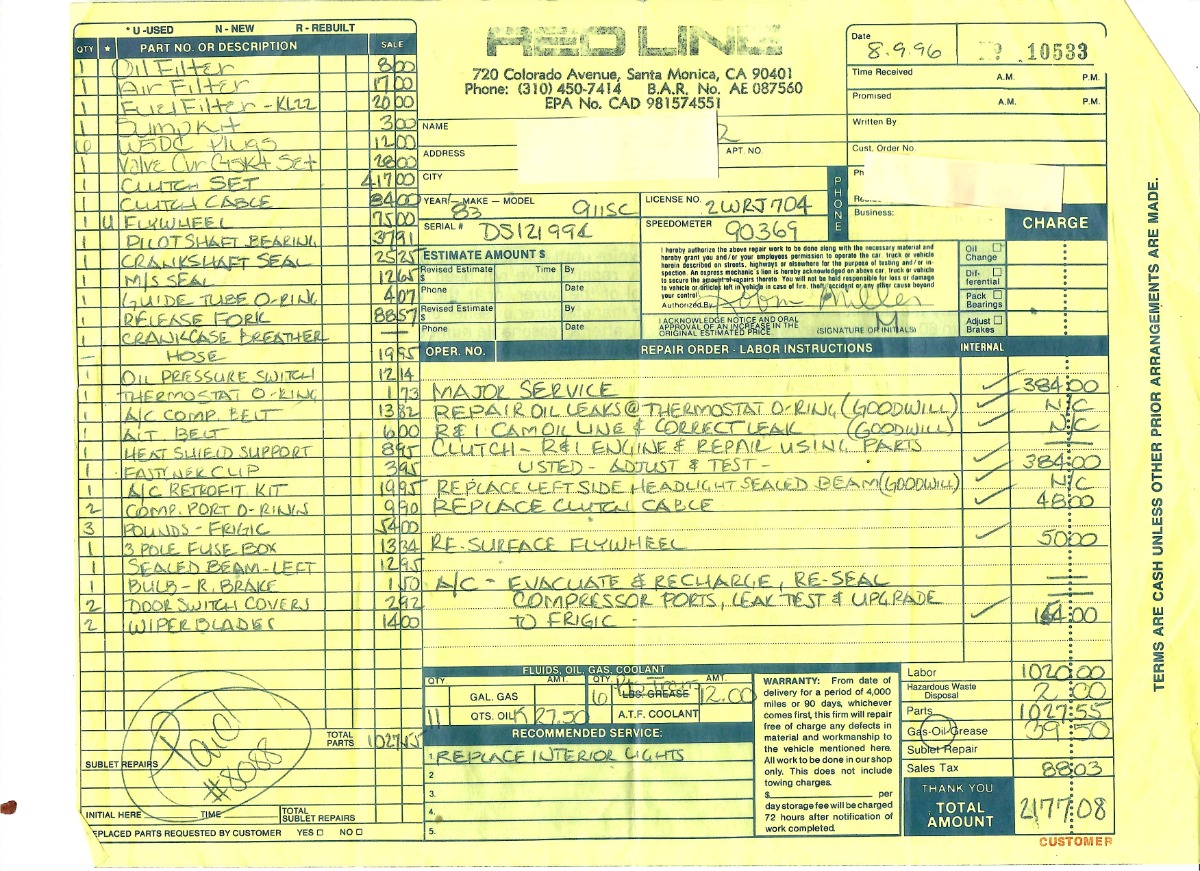 * U-USED N - NEW R - REBUILT
QTY * PART NO. OR DESCRIPTION SALE
1 Oil Filter 8 00
1 Air Filter 17 00
1 Fuel Filter - KL22 20 00
1 Sump Kit 3 00
6 W5DC Plugs 12 00
1 Valve Cvr Gskt Set 28 00
1 CLUTCH SET 417 00
1 CLUTCH CABLE 84 00
1 U FLYWHEEL 75 00
1 PILOT SHAFT BEARING 37 91
1 CRANKSHAFT SEAL 25 25
1 M/S SEAL 12 65
1 GUIDE TUBE O-RING 4 07
1 RELEASE FORK 88 57
1 CRANKCASE BREATHER —
— HOSE 19 95
1 OIL PRESSURE SWITCH 12 14
1 THERMOSTAT O-RING 1 73
1 A/C COMP. BELT 13 82
1 ALT BELT 6 00
1 HEAT SHIELD SUPPORT 8 95
1 FASTNER CLIP 3 95
1 A/C RETROFIT KIT 19 95
2 COMP. PORT O-RINGS 9 90
3 POUNDS - FRIGIC 54 00
1 3 POLE FUSE BOX 13 34
1 SEALED BEAM - LEFT 12 95
1 BULB - R. BRAKE 1 50
2 DOOR SWITCH COVERS 2 92
2 WIPER BLADES 14 00
TOTAL PARTS 1027 55
SUBLET REPAIRS
Paid
#8088
INITIAL HERE TIME
TOTAL SUBLET REPAIRS
REPLACED PARTS REQUESTED BY CUSTOMER YES NO
RED LINE
720 Colorado Avenue, Santa Monica, CA 90401
Phone: (310) 450-7414 B.A.R. No. AE 087560
EPA No. CAD 981574551
NAME
ADDRESS APT. NO.
CITY
YEAR - MAKE - MODEL 83 911SC
LICENSE NO. 2WRJ704
SERIAL # DS121994
SPEEDOMETER 90369
Date 8.9.96
Nº 10533
Time Received A.M. P.M.
Promised A.M. P.M.
Written By
Cust. Order No.
PHONE
Business:
CHARGE
ESTIMATE AMOUNT $
Revised Estimate $ Time By
Phone Date
Revised Estimate $ By
Phone Date
I hereby authorize the above repair work to be done along with the necessary material and
hereby grant you and/or your employees permission to operate the car, truck or vehicle
herein described on streets, highways or elsewhere for the purpose of testing and/or in-
spection. An express mechanic's lien is hereby acknowledged on above car, truck or vehicle
to secure the amount of repairs thereto. You will not be held responsible for loss or damage
to vehicle or articles left in vehicle in case of fire, theft, accident or any other cause beyond
your control.
Authorized By
I ACKNOWLEDGE NOTICE AND ORAL
APPROVAL OF AN INCREASE IN THE
ORIGINAL ESTIMATED PRICE.
(SIGNATURE OR INITIALS)
Oil Change
Dif-ferential
Pack Bearings
Adjust Brakes
OPER. NO. REPAIR ORDER - LABOR INSTRUCTIONS INTERNAL
MAJOR SERVICE 384.00
REPAIR OIL LEAKS @ THERMOSTAT O-RING (GOODWILL) N/C
R & I CAM OIL LINE & CORRECT LEAK (GOODWILL) N/C
CLUTCH - R&I ENGINE & REPAIR USING PARTS —
LISTED - ADJUST & TEST - 384.00
REPLACE LEFT SIDE HEADLIGHT SEALED BEAM (GOODWILL) N/C
REPLACE CLUTCH CABLE 48.00
RE-SURFACE FLYWHEEL 50.00
A/C - EVACUATE & RECHARGE, RE-SEAL —
COMPRESSOR PORTS, LEAK TEST & UPGRADE —
TO FRIGIC -
FLUIDS, OIL, GAS, COOLANT
QTY. AMT. QTY. AMT.
GAL. GAS LBS. GREASE 12.00
11 QTS. OIL 27.50 A.T.F. COOLANT
RECOMMENDED SERVICE:
1. REPLACE INTERIOR LIGHTS
2
3.
4.
5.
WARRANTY: From date of
delivery for a period of 4,000
miles or 90 days, whichever
comes first, this firm will repair
free of charge any defects in
material and workmanship to
the vehicle mentioned here.
All work to be done in our shop
only. This does not include
towing charges.
$ per
day storage fee will be charged
72 hours after notification of
work completed.
Labor 1020.00
Hazardous Waste Disposal 2.00
Parts 1027.55
Gas-Oil-Grease 39.50
Sublet Repair
Sales Tax 88 03
THANK YOU
TOTAL AMOUNT 2177.08
CUSTOMER
TERMS ARE CASH UNLESS OTHER PRIOR ARRANGEMENTS ARE MADE.